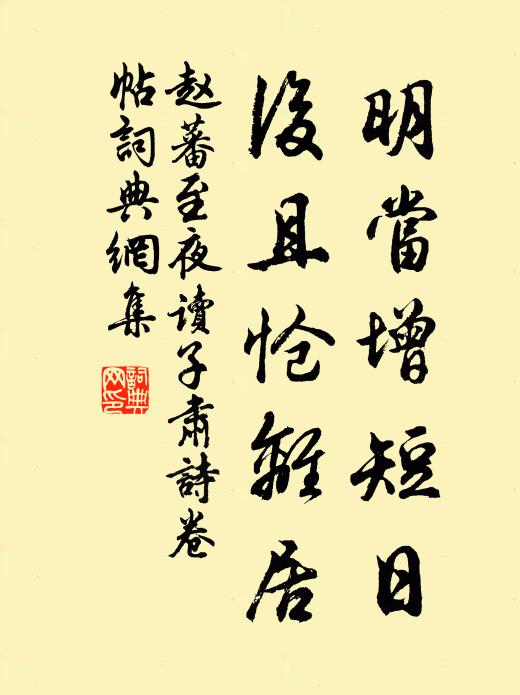 明當增短日
後且怆離居
赵蕃至夜读子肃詩卷
帖詞典網集
詞典网印